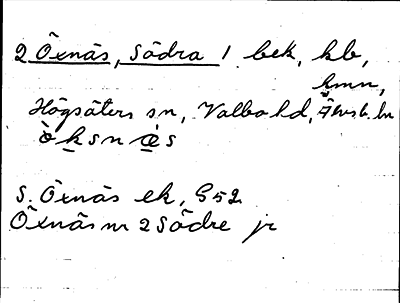 2 Öxnäs, Södra 1 bek, hb,
hmn,
Högsäters sn, Valbo hd, Älvsb. ln
ò k s n æ s
S. Öxnäs ek, G52
Öxnäs nr 2 Södre jr